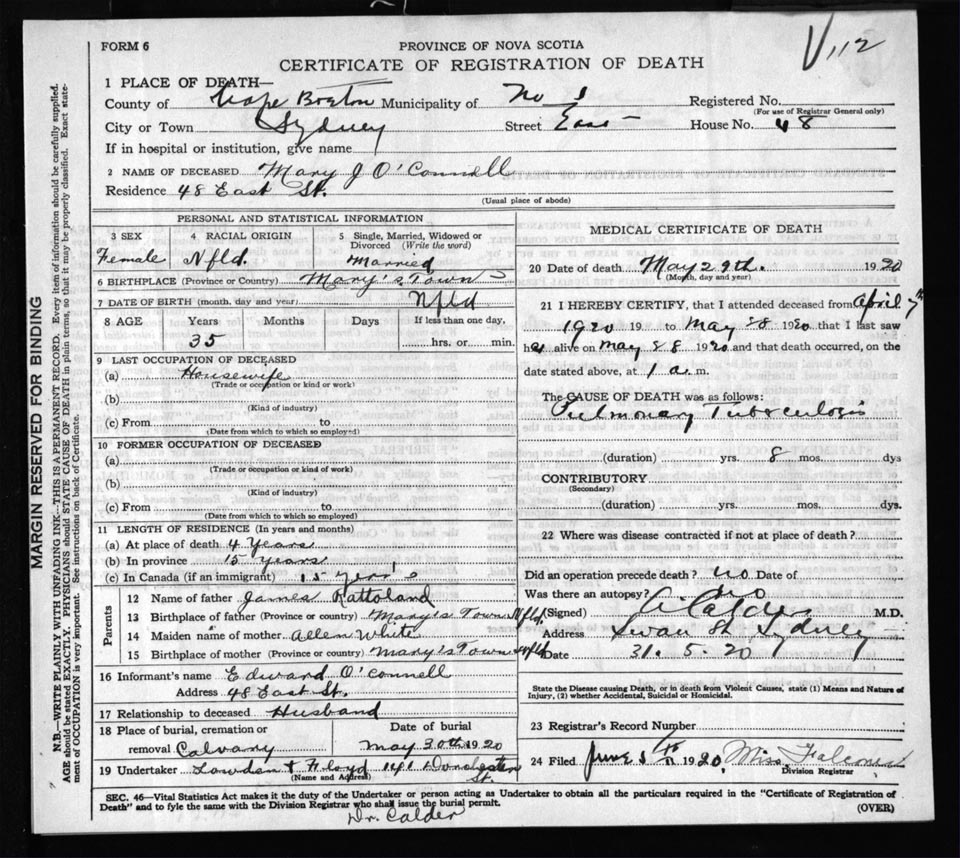 V 112
FORM 6
PROVINCE OF NOVA SCOTIA
CERTIFICATE OF REGISTRATION OF DEATH
1 PLACE OF DEATH—
County of Cape Breton Municipality of No 1 Registered No.
(For use of Registrar General only)
City or Town Sydney Street East House No. 48
If in hospital or institution, give name
2 NAME OF DECEASED Mary J O'Connell
Residence 48 East St.
(Usual place of abode)
PERSONAL AND STATISTICAL INFORMATION
3 SEX
Female
4 RACIAL ORIGIN
Nfld.
5 Single, Married, Widowed or Divorced (Write the word)
Married
6 BIRTHPLACE (Province or Country) Mary's Town
Nfld
7 DATE OF BIRTH (month, day and year)
8 AGE Years Months Days If less than one day,
35 hrs. or min.
9 LAST OCCUPATION OF DECEASED
(a) Housewife
(Trade or occupation or kind or work)
(b)
(Kind of industry)
(c) From to
(Date from which to which so employed)
10 FORMER OCCUPATION OF DECEASED
(a)
(Trade or occupation or kind of work)
(b)
(Kind of industry)
(c) From to
(Date from which to which so employed)
11 LENGTH OF RESIDENCE (In years and months)
(a) At place of death 4 Years
(b) In province 15 years
(c) In Canada (if an immigrant) 15 years
Parents
12 Name of father James Rattoland
13 Birthplace of father (Province or country) Mary's Town Nfld.
14 Maiden name of mother Allen White
15 Birthplace of mother (Province or country) Mary's Town Nfld
16 Informant's name Edward O'Connell
Address 48 East St.
17 Relationship to deceased Husband
18 Place of burial, cremation or removal Calvary
Date of burial
May 30th 1920
19 Undertaker Lowden & Floyd 141 Dorchester St.
(Name and Address)
MEDICAL CERTIFICATE OF DEATH
20 Date of death May 29th. 1920
(Month, day and year)
21 I HEREBY CERTIFY, that I attended deceased from April 7th
1920 19 to May 28 1920 that I last saw
her alive on May 28 1920 and that death occurred, on the
date stated above, at 1 a m.
The CAUSE OF DEATH was as follows:
Pulmonary Tuberculosis
(duration) yrs. 8 mos. dys
CONTRIBUTORY
(Secondary)
(duration) yrs. mos. dys.
22 Where was disease contracted if not at place of death?
Did an operation precede death? no Date of
Was there an autopsy? no
(Signed) Calder M.D.
Address Swan St Sydney
Date 31. 5. 20
State the Disease causing Death, or in death from Violent Causes, state (1) Means and Nature of
Injury, (2) whether Accidental, Suicidal or Homicidal.
23 Registrar's Record Number
24 Filed June 1920 Miss
Division Registrar
SEC. 46—Vital Statistics Act makes it the duty of the Undertaker or person acting as Undertaker to obtain all the particulars required in the "Certificate of Registration of
Death" and to fyle the same with the Division Registrar who shall issue the burial permit. (OVER)
Dr. Calder
MARGIN RESERVED FOR BINDING
N.B.—WRITE PLAINLY WITH UNFADING INK—THIS IS A PERMANENT RECORD. Every item of information should be carefully supplied.
AGE should be stated EXACTLY. PHYSICIANS should STATE CAUSE OF DEATH in plain terms, so that it may be properly classified. Exact state-
ment of OCCUPATION is very important. See instructions on back of Certificate.